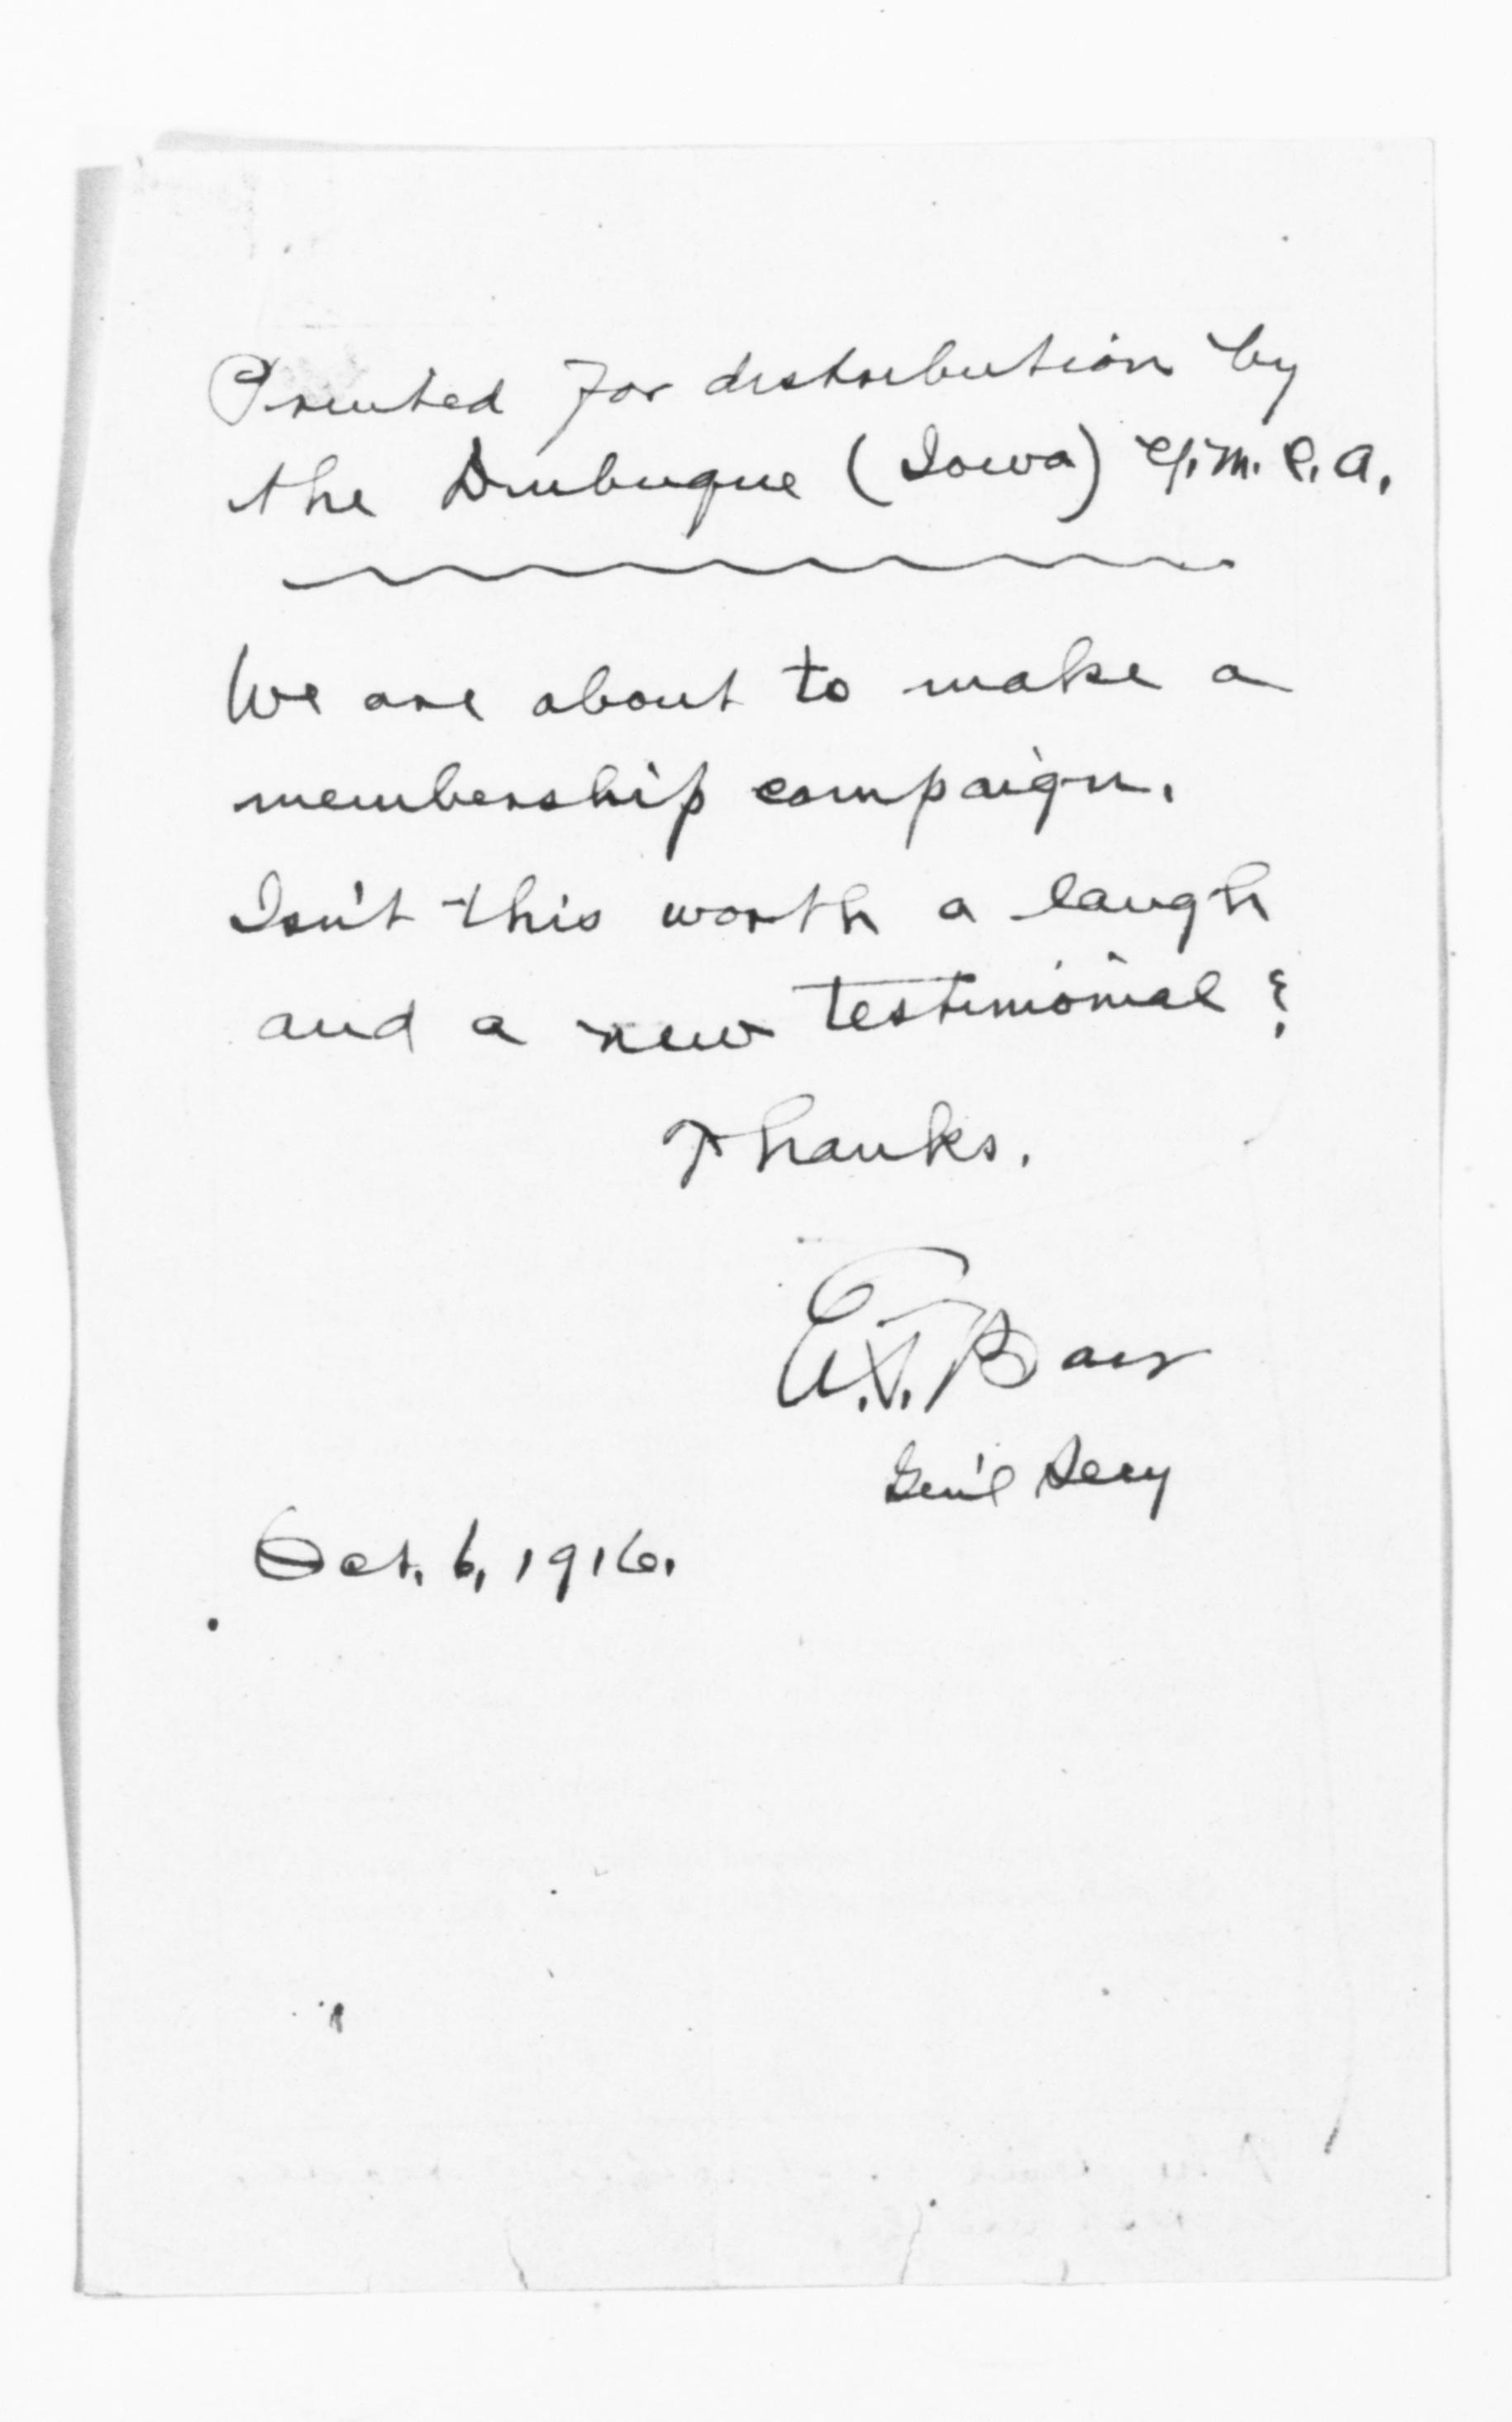 Printed for distribution by
the Dubuque (Iowa) Y.M.C.A.
We are about to make a
membership campaign.
Isn't this worth a laugh
and a new testimonial?
Thanks.
Gen'l Secy
Oct. 6, 1916.